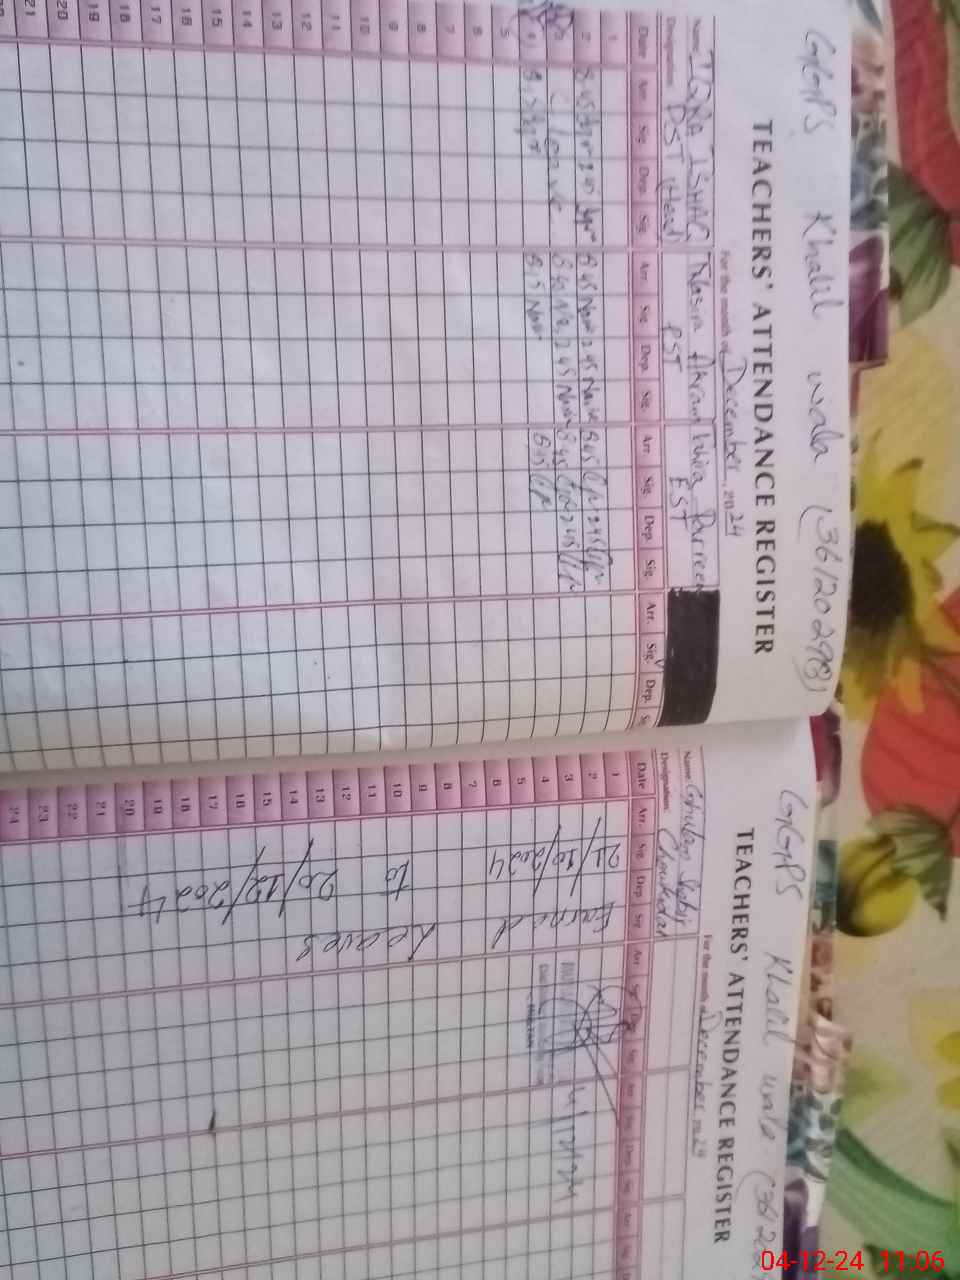 GGPS Khalil wala (36120298)
TEACHERS' ATTENDANCE REGISTER
For the month of December, 2024
Name IQRA ISHAQ
Designation PST (Head)
Akram
PST
Parveen
EST
Date Arr. Sig. Dep. Sig. Arr. Sig. Dep. Sig. Arr. Sig. Dep. Sig. Arr. Sig. Dep.
1
2 8 45 2 45 8 45 2 45 8 45 2 45
C/leave 8 45 2 45 8 45 2 45
4 8 15 8 15 8 15
5
6
7
8
9
10
11
12
13
14
15
16
17
18
19
20
21
GGPS Khalil wala
TEACHERS' ATTENDANCE REGISTER
For the month of December 2024
Name Ghulam Shabir
Designation Chowkidar
Date Arr. Sig. Dep. Sig. Arr.
1
2
3
4
5
6
7
8
9
10
11
12
13
14
15
16
17
18
19
20
21
22
23
24
21/10/2024
to
20/12/2024
Earned Leaves
4/12/24
04-12-24 11:06